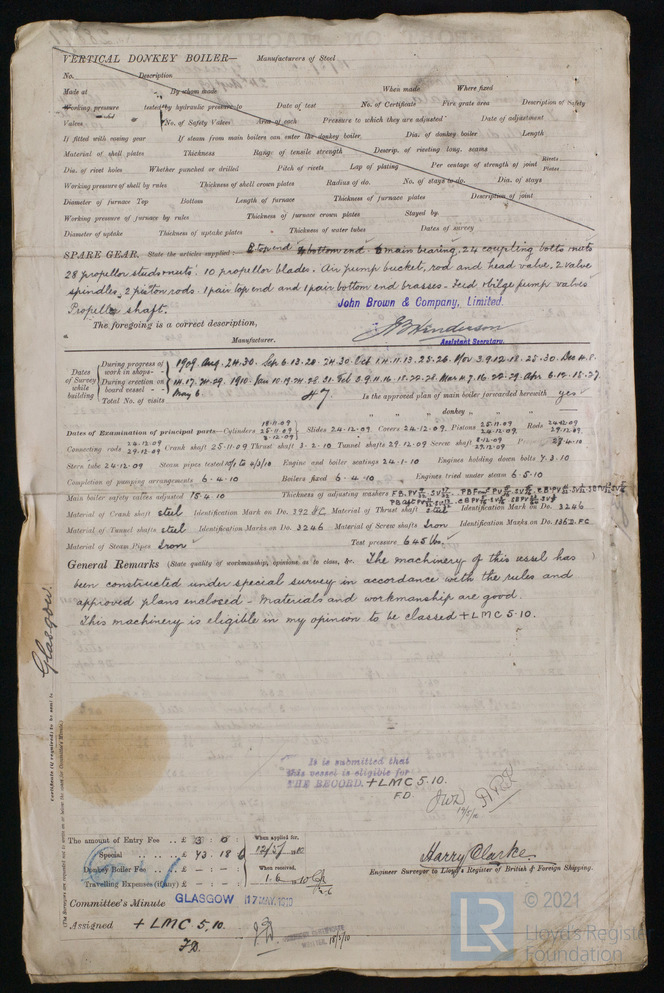 VERTICAL DONKEY BOILER— Manufacturers of Steel
No. Description
Made at By whom made When made Where fixed
Working pressure tested by hydraulic pressure to Date of test No. of Certificate Fire grate area Description of Safety
Valves No. of Safety Valves Area of each Pressure to which they are adjusted Date of adjustment
If fitted with easing gear If steam from main boilers can enter the donkey boiler Dia. of donkey boiler Length
Material of shell plates Thickness Range of tensile strength Descrip. of riveting long. seams
Dia. of rivet holes Whether punched or drilled Pitch of rivets Lap of plating Per centage of strength of joint Rivets Plates
Working pressure of shell by rules Thickness of shell crown plates Radius of do. No. of stays to do. Dia. of stays
Diameter of furnace Top Bottom Length of furnace Thickness of furnace plates Description of joint
Working pressure of furnace by rules Thickness of furnace crown plates Stayed by
Diameter of uptake Thickness of uptake plates Thickness of water tubes Dates of survey
SPARE GEAR. State the articles supplied:— 8 top end bottom end 6 main bearing, 24 coupling bolts nuts
28 propellor studs nuts. 10 propellor blades. Air pump bucket, rod and head valve, 2 valve
spindles, 2 piston rods. 1 pair top end and 1 pair bottom end brasses - Feed & bilge pump valves
Propeller shaft.
John Brown & Company, Limited.
The foregoing is a correct description,
Manufacturer. Assistant Secretary.
Dates of Survey while building
During progress of work in shops - - 1909. Aug. 24.30. Sep 6.13.20.24.30. Oct 1.4.11.13.25.26. Nov 3.9.12.18.25.30. Dec 4.8.
During erection on board vessel - - - 14.17.21.29. 1910. Jan 10.19.24.28.31. Feb 3.9.11.16.18.22.28. Mar 4.7.16.22.29. Apr 6.12.15.27.
Total No. of visits May 6. 47 Is the approved plan of main boiler forwarded herewith yes
" " " donkey " " "
Dates of Examination of principal parts—Cylinders 18·11·09 25·11·09 8·12·09 Slides 24.12.09 Covers 24.12.09 Pistons 25.11.09 24.12.09 Rods 24.12.09 29.12.09
Connecting rods 24.12.09 29.12.09 Crank shaft 25.11.09 Thrust shaft 3.2.10 Tunnel shafts 29.12.09 Screw shaft 8.12.09 29.12.09 28.4.10
Stern tube 24.12.09 Steam pipes tested Engine and boiler seatings 24.1.10 Engines holding down bolts 7.3.10
Completion of pumping arrangements 6.4.10 Boilers fixed 6.4.10 Engines tried under steam 6.5.10
Main boiler safety valves adjusted 15.4.10 Thickness of adjusting washers
Material of Crank shaft steel Identification Mark on Do. 392 HC Material of Thrust shaft steel Identification Mark on Do. 3246
Material of Tunnel shafts steel Identification Marks on Do. 3246 Material of Screw shafts Iron Identification Marks on Do. 1362 FC
Material of Steam Pipes Iron Test pressure 645 lbs.
General Remarks (State quality of workmanship, opinions as to class, &c. The machinery of this vessel has
been constructed under special survey in accordance with the rules and
approved plans enclosed - materials and workmanship are good.
This machinery is eligible in my opinion to be classed + LMC 5·10.
Glasgow.
Certificate (if required) to be sent to
It is submitted that
this vessel is eligible for
THE RECORD. + LMC 5.10.
F.D.
The amount of Entry Fee .. £ 3 : 0 : When applied for,
Special .. .. .. £ 43 : 18 : 6
Donkey Boiler Fee .. .. £ — : — : When received,
Travelling Expenses (if any) £ — : — : 1.6 10
Harry Clarke.
Engineer Surveyor to Lloyd's Register of British & Foreign Shipping.
Committee's Minute GLASGOW 17 MAY. 1910
Assigned + LMC 5.10.
F.D.
© 2021
LR
Lloyd's Register
Foundation